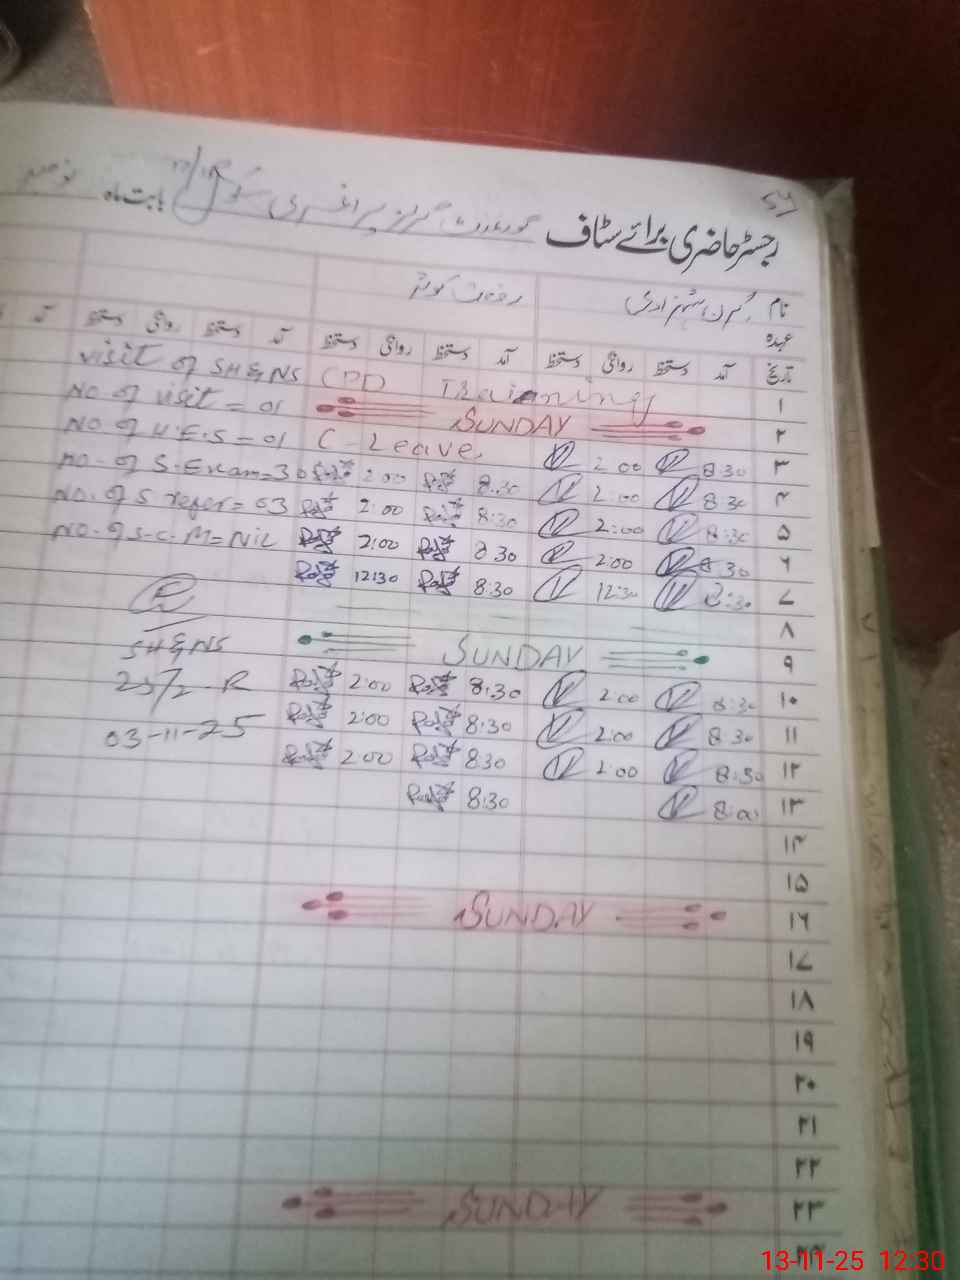 رجسٹر حاضری برائے سٹاف گورنمنٹ گرلز پرائمری سکول بابت ماہ نومبر
نام کرن شہزادی رفعت کوثر
عہدہ
تاریخ آمد دستخط روانگی دستخط آمد دستخط روانگی دستخط آمد دستخط روانگی دستخط آمد
۱ CPD Training visit of SH&NS
۲ SUNDAY NO of visit = 01
۳ 8:30 2:00 C-Leave NO of H.E.S = 01
۴ 8:30 2:00 8:30 2:00 NO. of S. Exam = 30
۵ 8:30 2:00 8:30 2:00 NO. of S refer = 03
۶ 8:30 2:00 8:30 2:00 NO. of S.C.M = Nil
۷ 8:30 12:30 8:30 12:30
۸
۹ SUNDAY SH&NS
۱۰ 8:30 2:00 8:30 2:00
۱۱ 8:30 2:00 8:30 2:00 03-11-25
۱۲ 8:30 2:00 8:30 2:00
۱۳ 8:00 8:30
۱۴
۱۵
۱۶ SUNDAY
۱۷
۱۸
۱۹
۲۰
۲۱
۲۲
۲۳ SUNDAY
۲۴
13-11-25 12:30